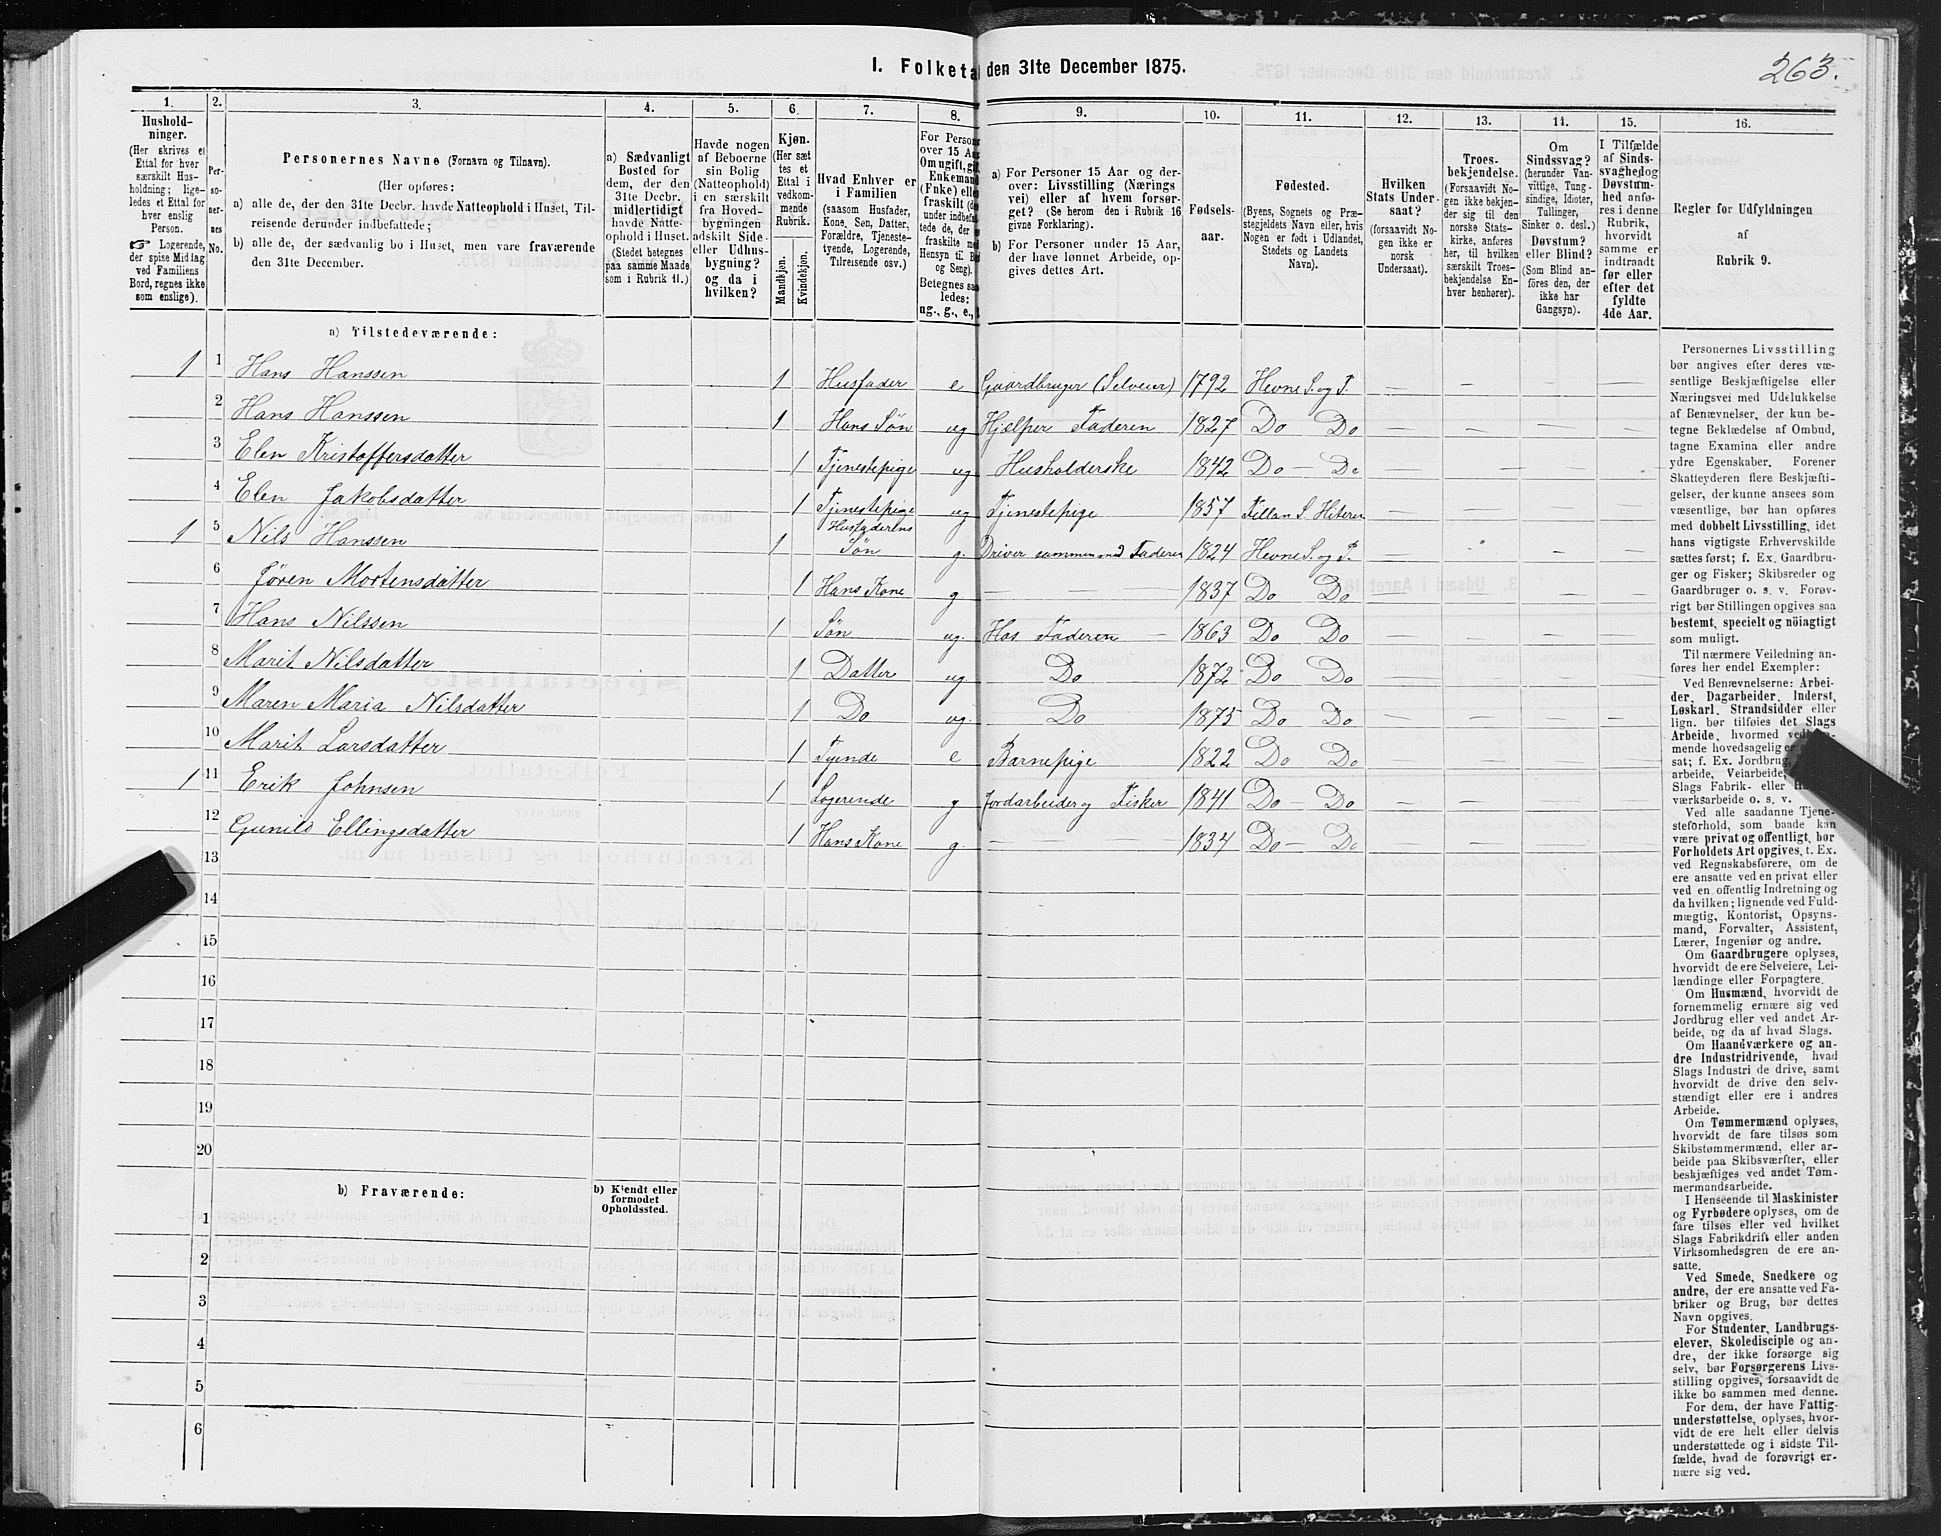 I. Folketa den 31te December 1875.
263.
1.
Hushold-
ninger.
(Her skrives et
Ettal for hver
særskilt Hus-
holdning; lige-
ledes et Ettal for
hver enslig
Person.
☞ Logerende,
der spise Midtag
ved Familiens
Bord, regnes ikke
som enslige).
2.
Per-
so-
ner-
nes
No.
3.
Personernes Navne (Fornavn og Tilnavn).
(Her opføres:
a) alle de, der den 31te Decbr. havde Natteophold i Huset, Til-
reisende derunder indbefattede;
b) alle de, der sædvanlig bo i Huset, men vare fraværende
den 31te December.
4.
a) Sædvanligt
Bosted for
dem, der den
31te Decbr.
midlertidigt
havde Natte-
ophold i Huset.
(Stedet betegnes
paa samme Maade
som i Rubrik 11.)
5.
Havde nogen
af Beboerne
sin Bolig
(Natteophold)
i en særskilt
fra Hoved-
bygningen
adskilt Side-
eller Udhus-
bygning?
og da i
hvilken?
6.
Kjøn.
(Her sæt
tes et
Ettal i
vedkom-
mende
Rubrik.
Mandkjøn.
Kvindekjøn.
7.
Hvad Enhver er
i Familien
(saasom Husfader,
Kone, Søn, Datter,
Forældre, Tjeneste-
tyende, Logerende,
Tilreisende osv.)
8.
For Person
over 15 Aa
Om ugift, gif
Enkemand
(Fnke) elle
fraskilt (de
under indbefat
tede de, der e
fraskilte me
Hensyn til Bo
og Seng).
Betegnes saa
ledes:
ug., g., e.,
9.
a) For Personer 15 Aar og der-
over: Livsstilling (Nærings
vei) eller af hvem forsør-
get? (Se herom den i Rubrik 16
givne Forklaring).
b) For Personer under 15 Aar,
der have lønnet Arbeide, op-
gives dettes Art.
10.
Fødsels-
aar.
11.
Fødested.
(Byens, Sognets og Præ-
stegjeldets Navn eller, hvis
Nogen er født i Udlandet,
Stedets og Landets
Navn).
12.
Hvilken
Stats Under-
saat?
(forsaavidt No-
gen ikke er
norsk
Undersaat).
13.
Troes-
bekjendelse.
(Forsaavidt No-
gen ikke bekjen-
der sig til den
norske Stats-
kirke, anføres
her, til hvilken
særskilt Troes-
bekjendelse En-
hver henhører).
14.
Om
Sindssvag?
(herunder Van-
vittige, Tung-
sindige, Idioter,
Tullinger,
Sinker o. desl.)
Døvstum?
eller Blind?
(Som Blind an-
føres den, der
ikke har
Gangsyn).
15.
I Tilfælde
af Sinds-
svaghedog
Døvstum-
hed anfø-
res i denne
Rubrik,
hvorvidt
samme er
indtraadt
før eller
efter det
fyldte
4de Aar.
16.
Regler for Udfyldningen
af
Rubrik 9.
a) Tilstedeværende:
1 1 Hans Hanssen 1 Husfader e Gaardbruger (Selveier) 1792 Hevne S. og P. — — — —
2 Hans Hanssen 1 Hans Søn ug Hjælper Faderen 1827 Do Do — — — —
3 Elen Kristoffersdatter 1 Tjenestepige ug Husholderske 1842 Do — Do — — — —
4 Elen Jakobsdatter 1 Tjenestepige ug Tjenestepige 1857 Fillan S. Hiteren — — — —
1 5 Nils Hanssen 1 Husfaderens Søn g. Driver sammen med Faderen 1824 Hevne S. og P. — — — —
6 Jøren Mortensdatter 1 Hans Kone g — — — 1837 Do Do — — — —
7 Hans Nilssen 1 Søn ug. Hos Faderen — 1863 Do Do — — — —
8 Marit Nilsdatter 1 Datter ug Do 1872 Do Do — — — —
9 Maren Maria Nilsdatter 1 Do ug. Do 1875 Do Do — — — —
10 Marit Larsdatter 1 Tyende e Barnepige 1822 Do Do — — — —
1 11 Erik Johnsen 1 Logerende g Jordarbeider og Fisker 1841 Do — Do — — — —
12 Gunild Ellingsdatter 1 Hans Kone g. — — — 1834 Do — Do — — — —
13
14
15
16
17
18
19
20
b) Fraværende:
b) Kjendt eller
formodet
Opholdssted.
1
2
3
4
5
6
Personernes Livsstilling
bør angives efter deres væ-
sentlige Beskjæftigelse eller
Næringsvei med Udelukkelse
af Benævnelser, der kun be-
tegne Beklædelse af Ombud,
tagne Examina eller andre
ydre Egenskaber. Forener
Skatteyderen flere Beskjæfti-
gelser, der kunne ansees som
væsentlige, bør han opføres
med dobbelt Livsstilling, idet
hans vigtigste Erhvervskilde
sættes først; f. Ex. Gaardbru-
ger og Fisker; Skibsreder og
Gaardbruger o. s. v. Forøv-
rigt bør Stillingen opgives saa
bestemt, specielt og nöiagtigt
som muligt.
Til nærmere Veiledning an-
føres her endel Exempler:
Ved Benævnelserne: Arbei-
der, Dagarbeider, Inderst,
Løskarl, Strandsidder eller
lign. bør tilføies det Slags
Arbeide, hvormed ved
mende hovedsagelig er
sat; f. Ex. Jordbrug,
arbeide, Veiarbeide,
Slags Fabrik- eller H
værksarbeide o. s. v.
Ved alle saadanne Tjene-
steforhold, som baade kan
være privat og offentligt, bør
Forholdets Art opgives, t. Ex.
ved Regnskabsførere, om de
ere ansatte ved en privat eller
ved en offentlig Indretning og
da hvilken; lignende ved Fuld-
mægtig, Kontorist, Opsyns-
mand, Forvalter, Assistent,
Lærer, Ingeniør og andre.
Om Gaardbrugere oplyses,
hvorvidt de ere Selveiere, Lei-
lændinge eller Forpagtere.
Om Husmænd, hvorvidt de
fornemmelig ernære sig ved
Jordbrug eller ved andet Ar-
beide, og da af hvad Slags.
Om Haandværkere og an-
dre Industridrivende, hvad
Slags Industri de drive, samt
hvorvidt de drive den selv-
stændigt eller ere i andres
Arbeide.
Om Tømmermænd oplyses,
hvorvidt de fare tilsøs som
Skibstømmermænd, eller ar-
beide paa Skibsværfter, eller
beskjæftiges ved andet Tøm-
mermandsarbeide.
I Henseende til Maskinister
og Fyrbødere oplyses, om de
fare tilsøs eller ved hvilket
Slags Fabrikdrift eller anden
Virksomhedsgren de ere an-
satte.
Ved Smede, Snedkere og
andre, der ere ansatte ved Fa-
briker og Brug, bør dettes
Navn opgives.
For Studenter, Landbrugs-
elever, Skoledisciple og an-
dre, der ikke forsørge sig
selv, bør Forsørgerens Livs-
stilling opgives, forsaavidt de
ikke bo sammen med denne.
For dem, der have Fattig-
understøttelse, oplyses, hvor-
vidt de ere helt eller delvis
understøttede og i sidste Til-
fælde, hvad de forøvrigt er-
nære sig ved.